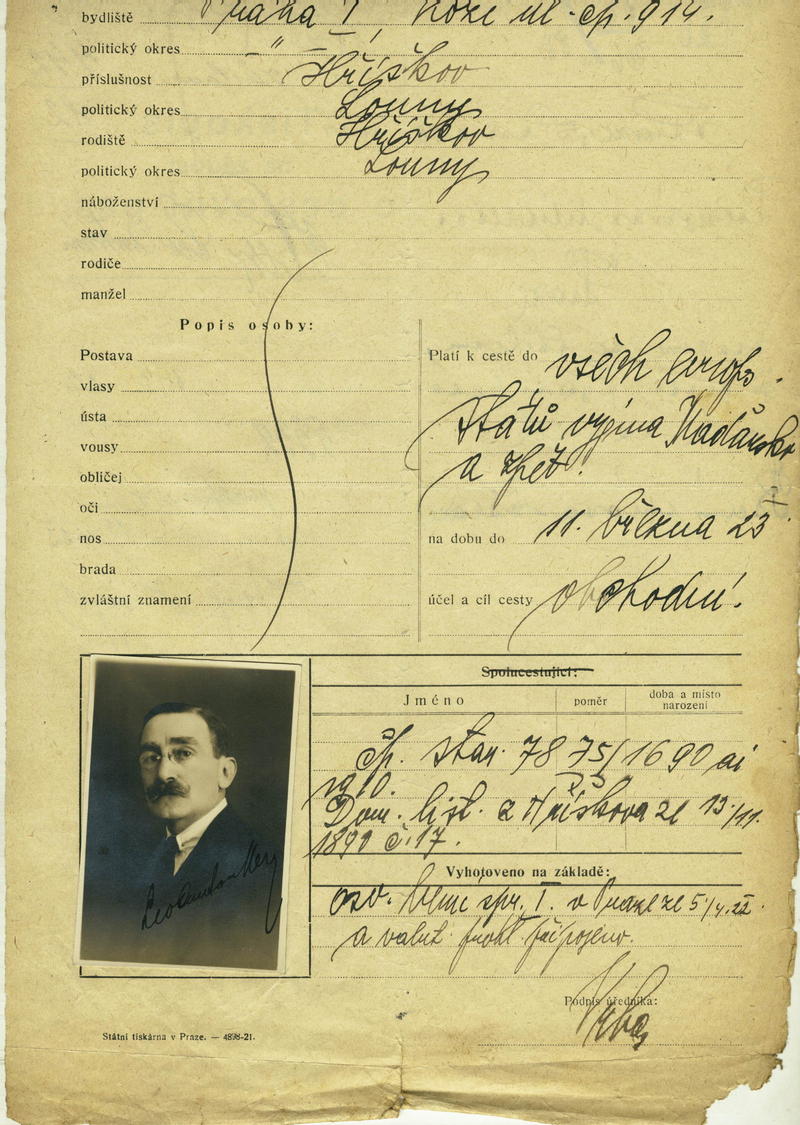 bydliště Praha I, Kozí ul. čp. 914.
politický okres — " —
příslušnost Hříškov
politický okres Louny
rodiště Hříškov
politický okres Louny
náboženství
stav
rodiče
manžel
Popis osoby:
Postava
vlasy
ústa
vousy
obličej
oči
nos
brada
zvláštní znamení
Platí k cestě do všech evrop.
států vyjma Maďarsko
a zpět.
na dobu do 11. března 23
účel a cíl cesty obchodní.
Spolucestující:
Jméno poměr doba a místo narození
čp. stan. 7875/1690 ai
Dom. list. z Hříškova ze 13/11.
1890 č. 17.
Vyhotoveno na základě:
osv. berní spr. I. v Praze ze 5/4.22.
a valut. prohl. připojeno.
Podpis úředníka:
Státní tiskárna v Praze. — 4898-21.